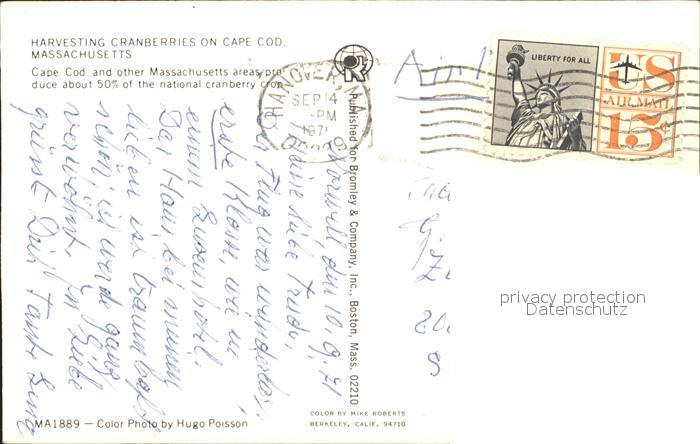 HARVESTING CRANBERRIES ON CAPE COD,
MASSACHUSETTS
Cape Cod and other Massachusetts areas pro-
duce about 50% of the national cranberry crop.
HANOVER, MA
SEP 14
PM
1971
LIBERTY FOR ALL
US
AIR MAIL
13c
Published for Bromley & Company, Inc., Boston, Mass. 02210
Norwell den 10.9.71
Meine liebe Trudi,
der Flug war wunderbar,
erste Klasse, wie in
einem Luxushotel.
Das Haus bei meinen
Lieben ist traumhaft
schön, ich werde ganz
verwöhnt. In Liebe
grüsst Dich Tante
privacy protection
Datenschutz
MA1889 — Color Photo by Hugo Poisson
COLOR BY MIKE ROBERTS
BERKELEY, CALIF. 94710